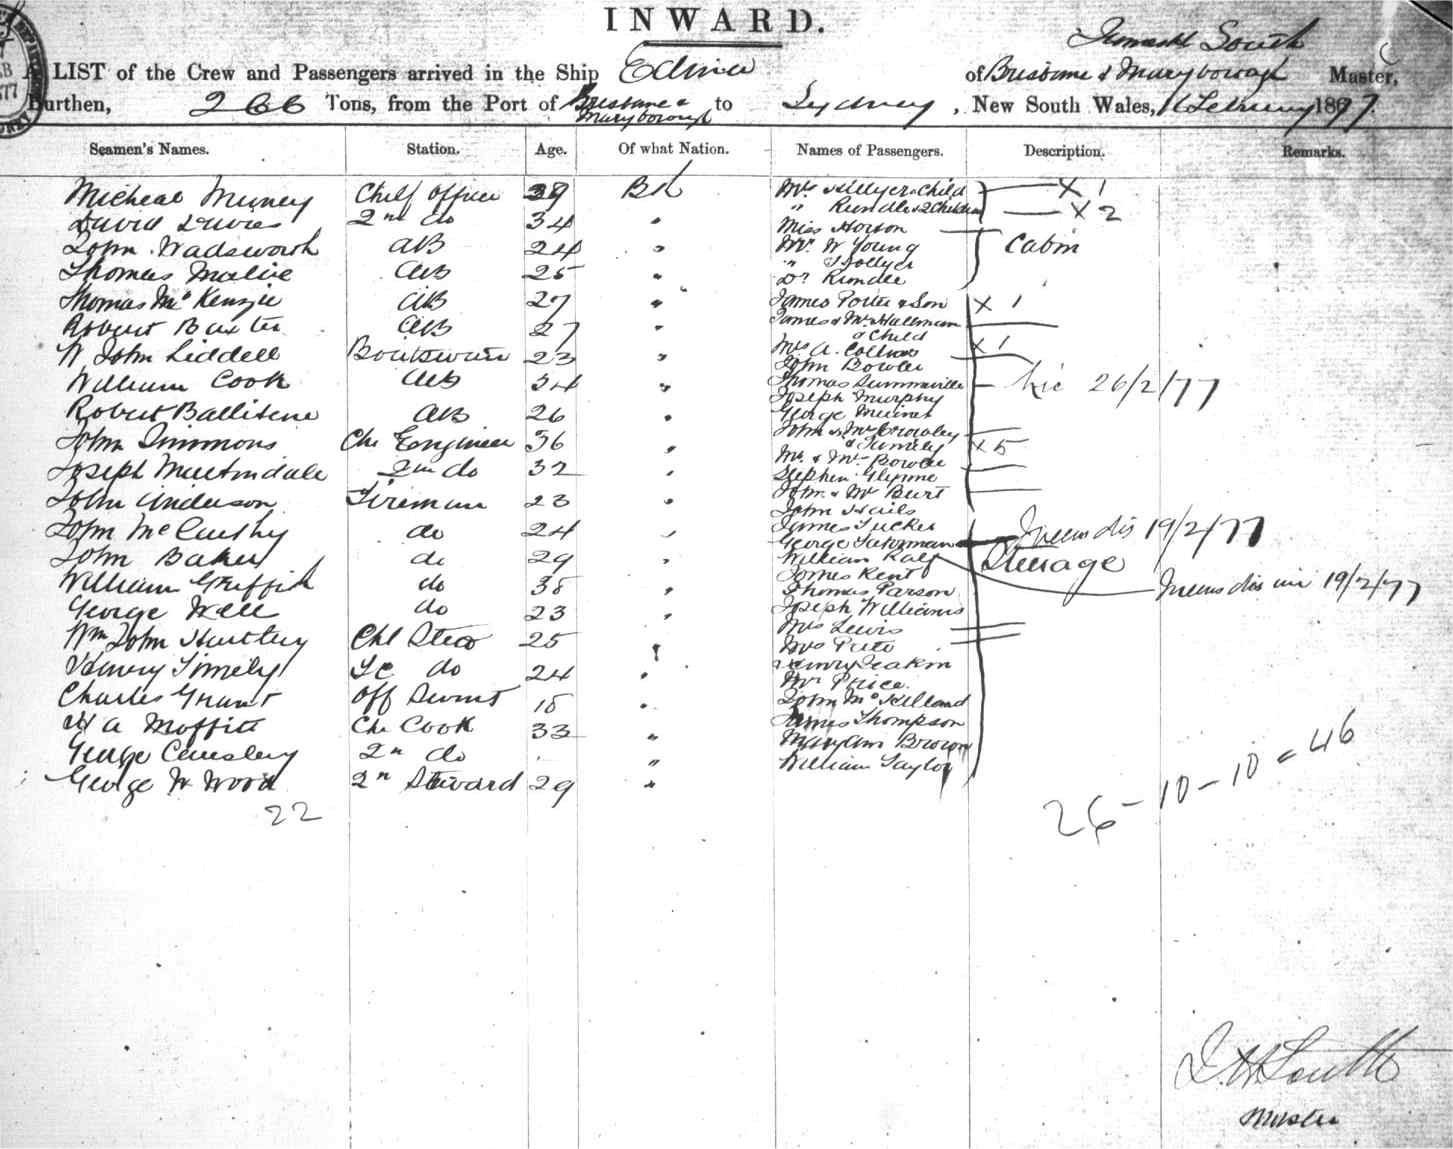 INWARD.
South
A LIST of the Crew and Passengers arrived in the Ship Edina of Brisbane & Maryborough Master,
Burthen, 266 Tons, from the Port of Brisbane & Maryborough to Sydney, New South Wales, February 1877.
Seamen's Names. Station. Age. Of what Nation. Names of Passengers. Description. Remarks.
Micheal Chief Officer 39
David Davies 2nd do 34 "
John Wadsworth AB 24 "
Thomas AB 25 "
Thomas McKenzie AB 27 "
Robert Baxter AB 27 "
W John Liddell Boatswain 23 "
William Cook AB 34 "
Robert AB 26 "
John Simmons Ch Engineer 36 "
Joseph Martindale 2nd do 32 "
John Anderson Fireman 23 "
John McCarthy do 24 "
John Baker do 29 "
William Griffith do 38 "
George do 23 "
Wm John Hartley Chf 25 "
Henry do 24 "
Charles Grant 15 "
W A Moffitt Ch Cook 33 "
George 2n do "
George W Wood 2n Steward 29 "
22
Mrs & Child X 1
" Rundle & 2 Children X 2
Miss Horton
Mr W Young Cabin
" Hollyer
Dr Rundle
James Porter & Son X 1
James & Mrs Hallman
& Child X 1
Mrs A.
John Bowler
Thomas 26/2/77
Joseph Murphy
George
John & Mrs Crowley
& Family X 5
Mr & Mrs Bowler
Stephen Glynne
John & Mrs Burt
John Hails
James Tucker
George 19/2/77
William Steerage
James Kent 19/2/77
Thomas Parson
Joseph Williams
Mrs Lewis
Mrs
Henry
Mr Price
John
James Thompson
Maryann Brown
William Taylor
26-10-10=46
South
Master